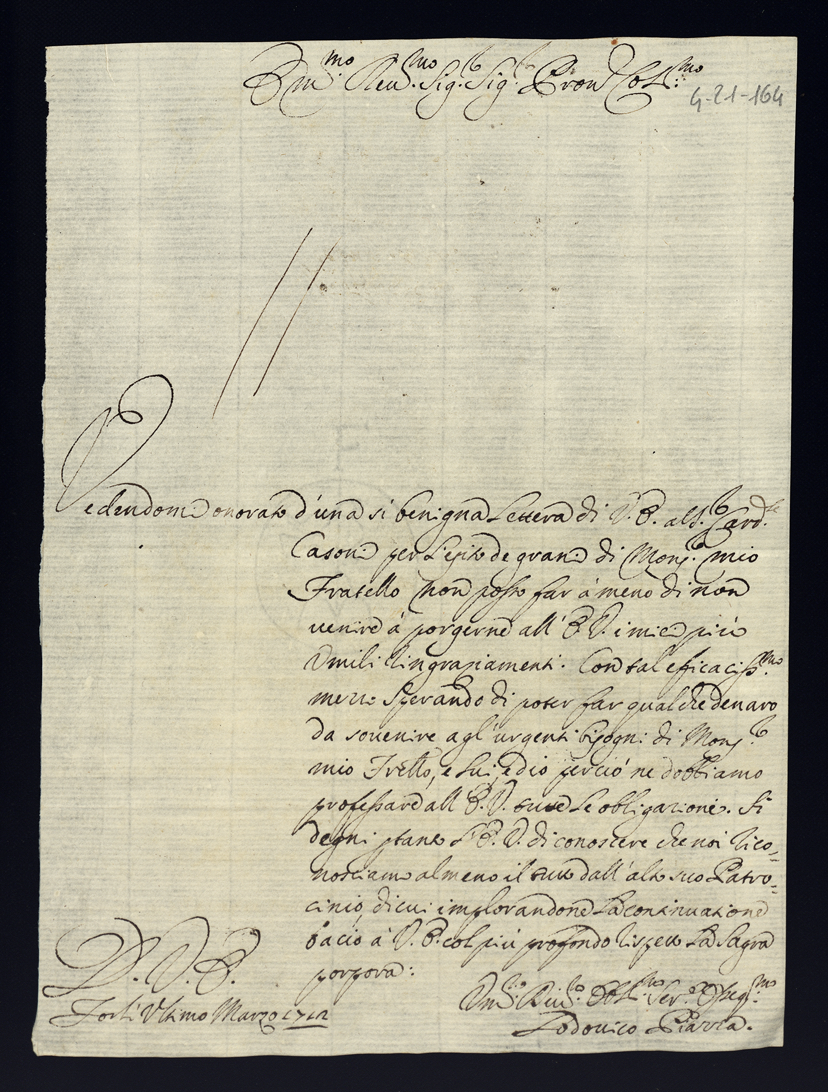 Em.mo Reu.mo Sig.r Sig.r Pron Col.mo
4-21-164
Vedendomi onorato d'una si benigna Lettera di V. E. al S.r Card.le
Casoni per l'esito de grani di Mons.r mio
Fratello non posso far á meno di non
venire á porgerne all' E. V. i miei piú
Vmili ringraziamenti. Con tal efficaciss.mo
mezzo sperando di poter far qualche denaro
da sovenire agl' urgenti bisogni di Mons.r
mio Frello, e lui, ed io perció ne dobbiamo
professare all' E. V. tutte le obligazioni. Si
degni ptanto l'E. V. di conoscere che noi rico=
nosciamo almeno il tutto dall' alto suo Patro=
cinio, di cui implorandone la continuatione
bacio á V. E. col piú profondo rispetto la Sagra
porpora:
D. V. E.
Forlì Vltimo Marzo 1712
Vm.o Diu.o Obl.mo Ser.e Osseq.mo
Lodovico Piazza.